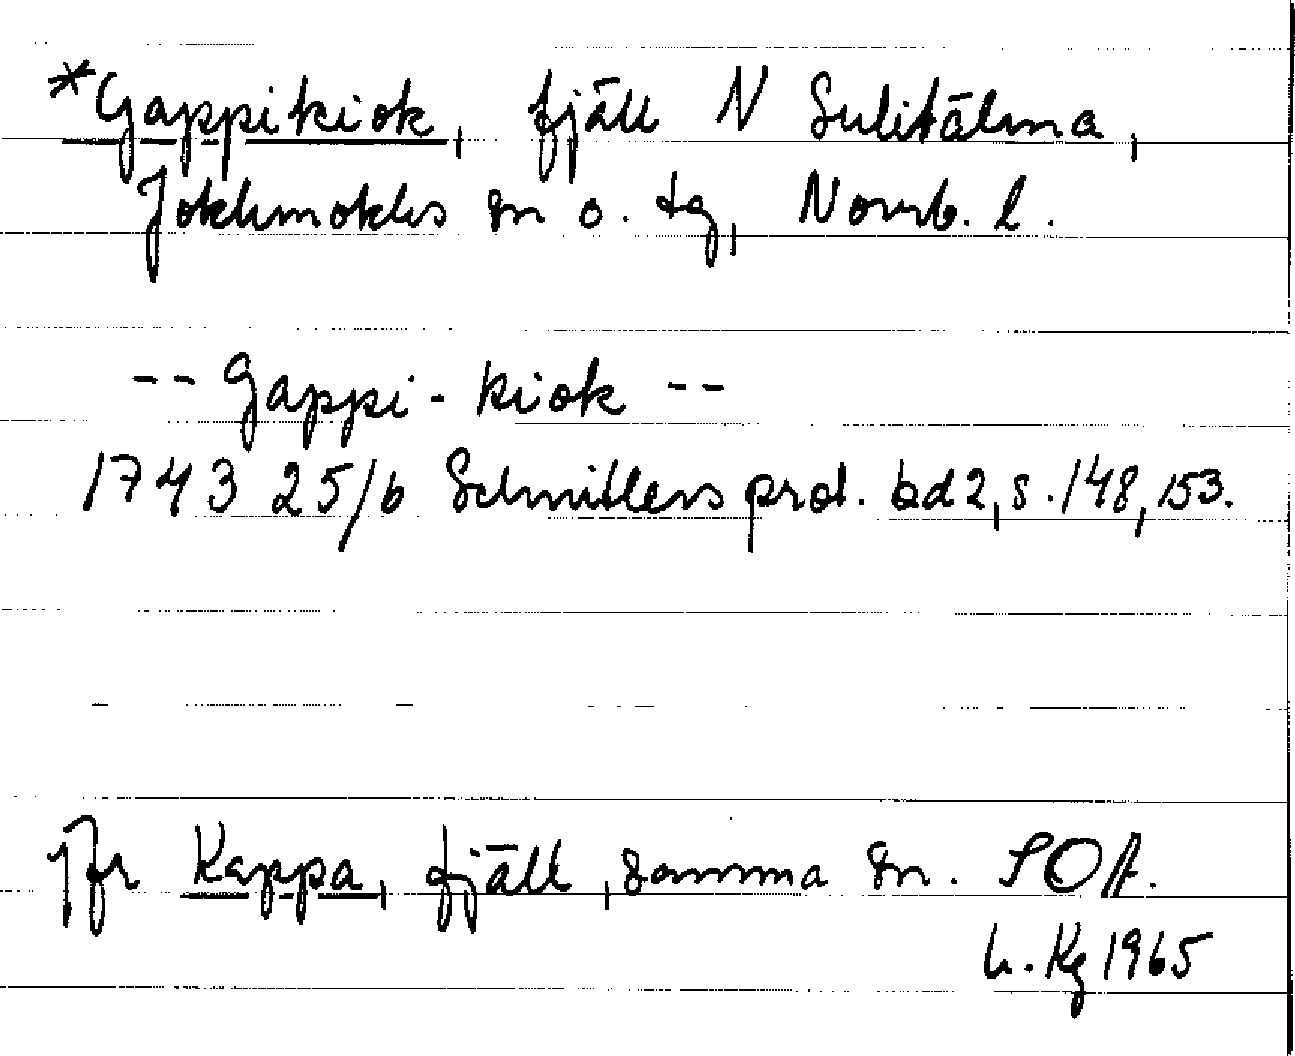 *Gappikiok, fjäll N Sulitälma,
Jokkmokks sn o. tg, Norrb. l.
-- Gappi-kiok --
1743 25/6 Schnitlers prot. bd 2, s. 148, 153.
Jfr Kappa, fjäll, samma sn. SOA.
L. Kg 1965